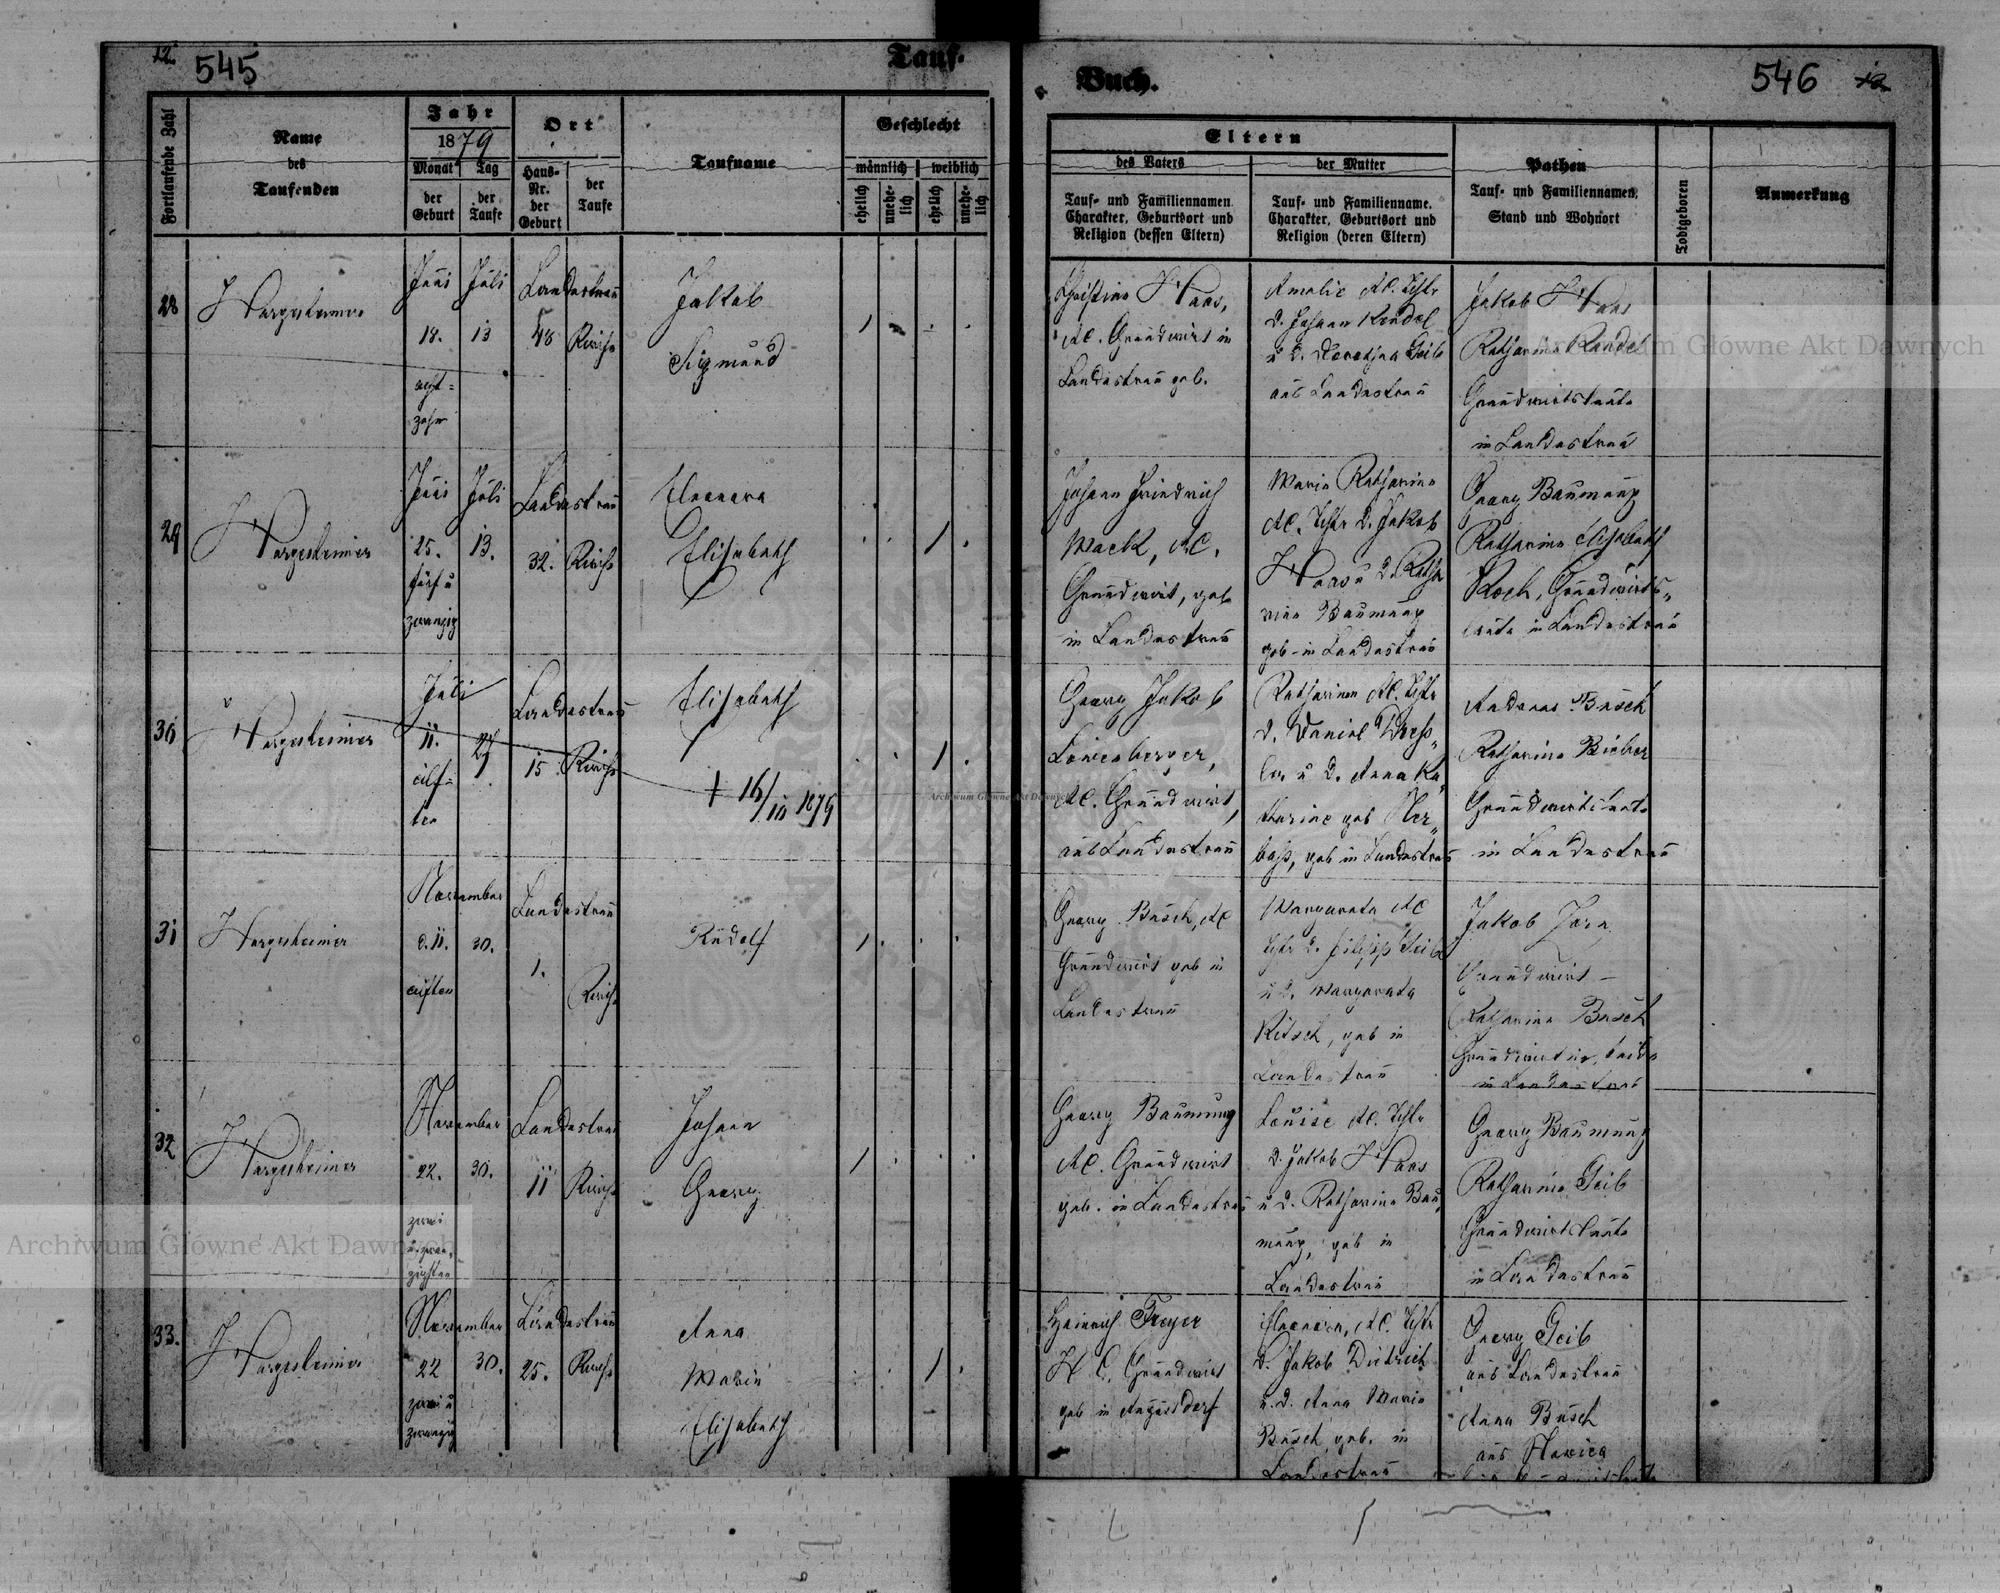 12.
545
Tauf-
Buch.
546
12
Fortlaufende Zahl
Name
des
Taufenden
Jahr
1879
Monat
Tag
der
Geburt
der
Taufe
Ort
Haus-
Nr.
der
Geburt
der
Taufe
Taufname
Geschlecht
männlich
weiblich
ehelich
unehe-
lich
ehelich
unehe-
lich
Eltern
des Vaters
der Mutter
Tauf- und Familiennamen
Charakter, Geburtsort und
Religion (dessen Eltern)
Tauf- und Familienname.
Charakter, Geburtsort und
Religion (deren Eltern)
Pathen
Tauf- und Familiennamen,
Stand und Wohnort
Todtgeboren
Anmerkung
28
Hargesheimer
Juni
Juli
Landestreu
18.
13
48
Kirche
acht-
zehn
Jakob
Sigmund
Christian Haas,
AC. Grundwirt in
Landestreu geb.
Amalie AC. Tchtr
d. Johann Kendel
u d. Dorothea Geib
aus Landestreu
Jakob Haas
Katharina Kandel
Grundwirtsleute
in Landestreu
29
Hargesheimer
Juni
Juli
Landestreu
25.
13.
32.
Kirche
fünf u
zwanzig
Eleonora
Elisabeth
Johann Friedrich
Mack, AC.
Grundwirt, geb
in Landestreu
Maria Katharina
AC. Tchtr d. Jakob
Haas u d. Katha
rina Baumung
geb in Landestreu
Georg Baumung
Katharina Elisabeth
Koch, Grundwirts-
leute in Landestreu
30
Hargesheimer
Juli
Landestreu
11.
27
15
Kirche
eilf-
ten
Elisabeth
+ 16/10 1879
Georg Jakob
Löwenberger,
AC. Grundwirt,
aus Landestreu
Katharina AC. Tchtr
d. Daniel Dress-
ler u d. Anna Ka-
tharine geb Her-
bach, geb in Landestreu
Andreas Busch
Katharina Bieber
Grundwirtsleute
in Landestreu
31
Hargesheimer
November
Landestreu
d. 11.
30.
1.
Kirche
eilften
Rudolf
Georg Busch, AC
Grundwirt geb in
Landestreu
Margareta AC
Tchtr d. Filipp Geib
u d. Margareta
Kitsch, geb in
Landestreu
Jakob Zorn
Grundwirt -
Katharina Busch
Grundwirtin, beide
in Landestreu
32
Hargesheimer
November
Landestreu
22.
30.
11
Kirche
zwei
u zwan-
zigsten
Johann
Georg
Georg Baumung
AC. Grundwirt
geb. in Landestreu
Louise AC. Tchtr
d. Jakob Haas
u d. Katharina Bau-
mung, geb in
Landestreu
Georg Baumung
Katharina Geib
Grundwirtsleute
in Landestreu
33.
Hargesheimer
November
Landestreu
22
30.
25.
Kirche
zwei u
zwanzig
Anna
Maria
Elisabeth
Heinrich Freyer
H C. Grundwirt
geb in Augusdorf
Eleonora, AC. Tchtr
d. Jakob Dietrich
u. d. Anna Maria
Busch geb. in
Landestreu
Georg Geib
aus Landestreu
Anna Busch
aus Nowica
Archiwum Główne Akt Dawnych
Archiwum Główne Akt Dawnych
Archiwum Główne Akt Dawnych